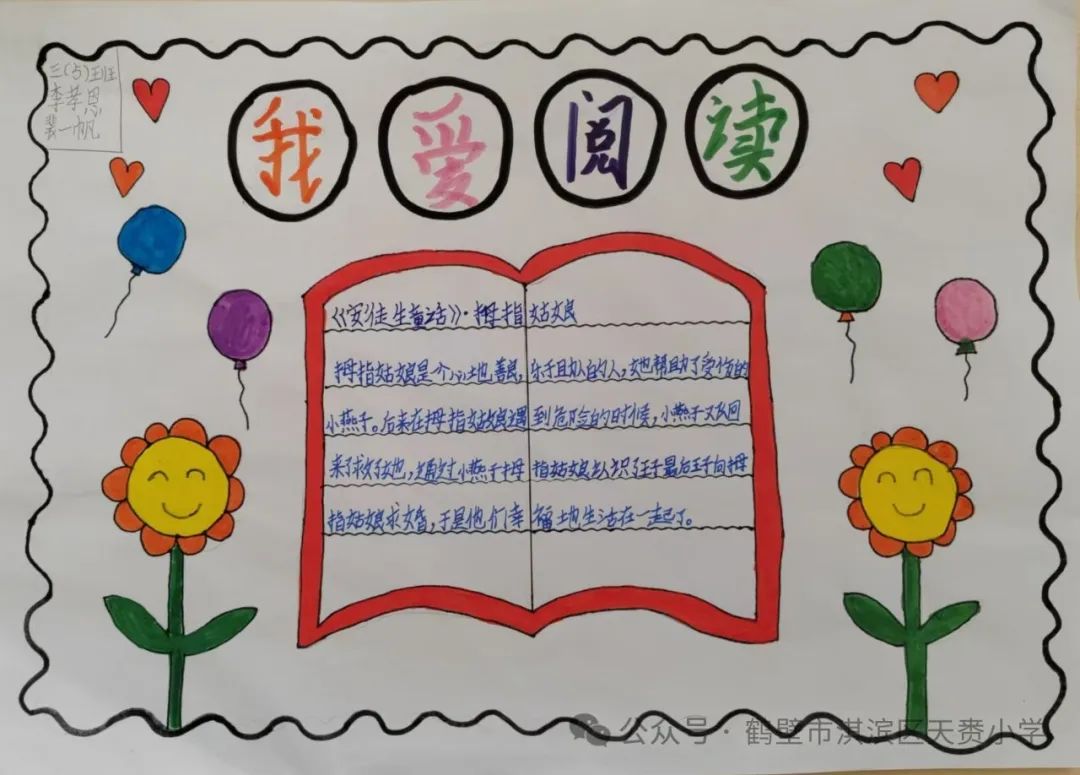 三(5)班
李孝恩
裴一帆
我爱阅读
《安徒生童话》·拇指姑娘
拇指姑娘是个心地善良,乐于助人的人,她帮助了受伤的
小燕子。后来在拇指姑娘遇到危险的时候,小燕子又飞回
来了求好了她,通过小燕子拇指姑娘认识了王子最后王子向拇
指姑娘求婚,于是他们幸福地生活在一起了。
公众号·鹤壁市淇滨区天赉小学